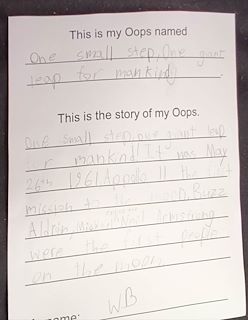 This is my Oops named
One small step, One giant
leap for mankind
This is the story of my Oops.
One small step, one giant leap
for mankind! It was May
26th 1961, Appollo 11 the first
mission to the moon, Buzz
Aldrin, Neil Armstrong
were the first people
on the moon.
WB
name: